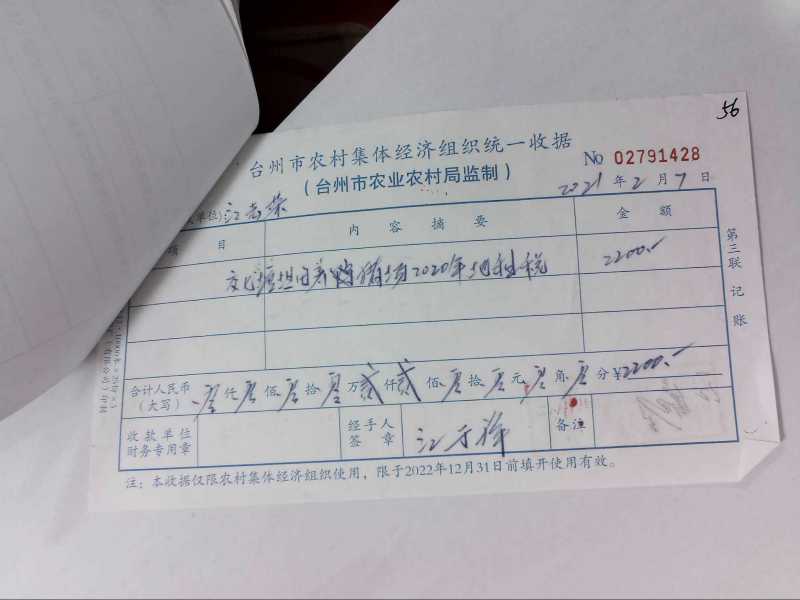 56
台州市农村集体经济组织统一收据
(台州市农业农村局监制)
No 02791428
2021年2月7日
单位)江
项目 内容摘要 金额
2020年 2200.-
合计人民币
(大写) 零仟零佰零拾零万贰仟贰佰零拾零元零角零分¥2200.-
收款单位
财务专用章
经手人
签章 江
备注
第三联 记账
注：本收据仅限农村集体经济组织使用，限于2022年12月31日前填开使用有效。